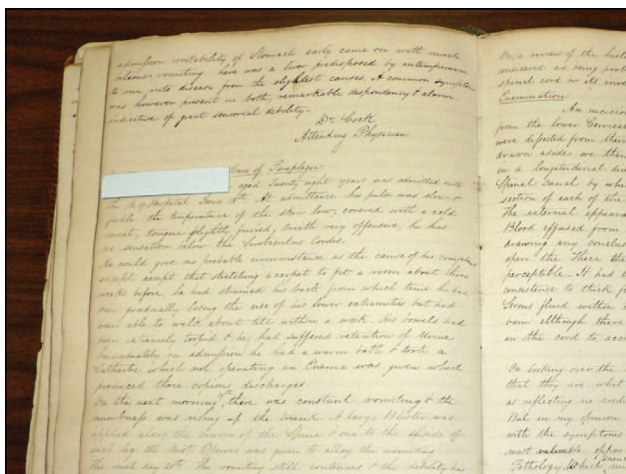 admission irritability of Stomach early came on with much
vomiting here was a liver predisposed by intemperance
to run into disease from the slightest causes. A common symptom
was however present in both, remarkable despondency & alarm
indicative of great sensorial debility.
Dr. Cock
Attending Physician
Case of Paraplegia
aged Twenty eight years was admitted into
the N Y Hospital June 18th. At admittance his pulse was slow &
feeble the temperature of the skin low, covered with a cold
sweat, tongue slightly furred, breath very offensive, he has
no sensation below the Scrobiculus Cordis.
He could give no probable circumstance as the cause of his complaint
except that stretching a carpet to fit a room about three
weeks before he had strained his back from which time he had
been gradually losing the use of his lower extremities but had
been able to walk about till within a week. His bowels had
been extremely torpid & he had suffered retention of Urine
Immediately on admission he had a warm bath & took a
Cathartic which not operating an Enema was given which
produced three copious discharges.
On the next morning 19th there was constant vomiting & the
numbness was rising up the trunk. A large Blister was
applied along the course of the Spine & one to the inside of
each leg the was given to allay the vomiting
The next day 20th The vomiting still continues & the debility has
On a review of the
considered as being
spinal cord or its
Examination
An incision
from the lower Cervical
were dissected from their
drawn aside we then
in a longitudinal
Spinal Canal by
section of each of the
The external
Blood effused from
drawing any
upon the Theca the
perceptible. It had
consistence to thick
Serous fluid within
vain although there
in the cord to
On looking over the
that they are what
as reflecting no
But in my opinion
with the symptoms
most valuable
Pathology, which